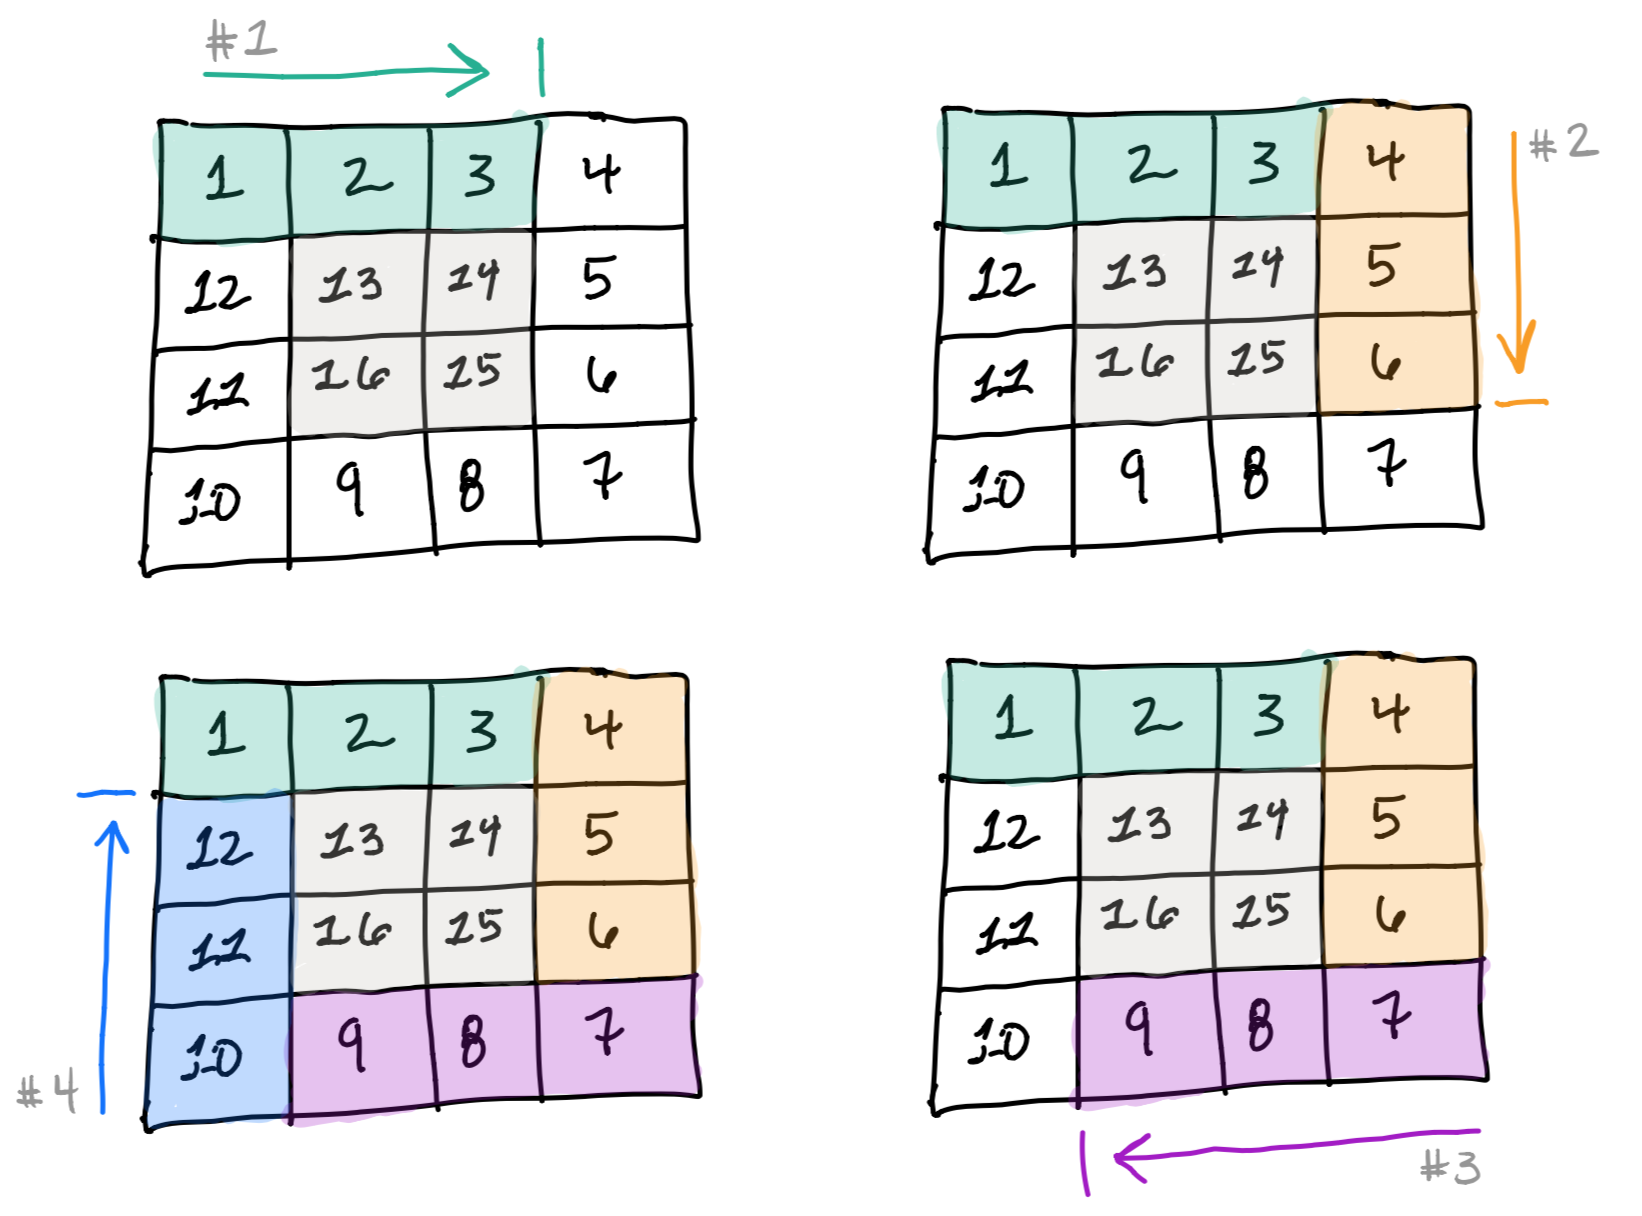 #1
1 2 3 4
12 13 14 5
11 16 15 6
10 9 8 7
#2
1 2 3 4
12 13 14 5
11 16 15 6
10 9 8 7
#4
1 2 3 4
12 13 14 5
11 16 15 6
10 9 8 7
#3
1 2 3 4
12 13 14 5
11 16 15 6
10 9 8 7